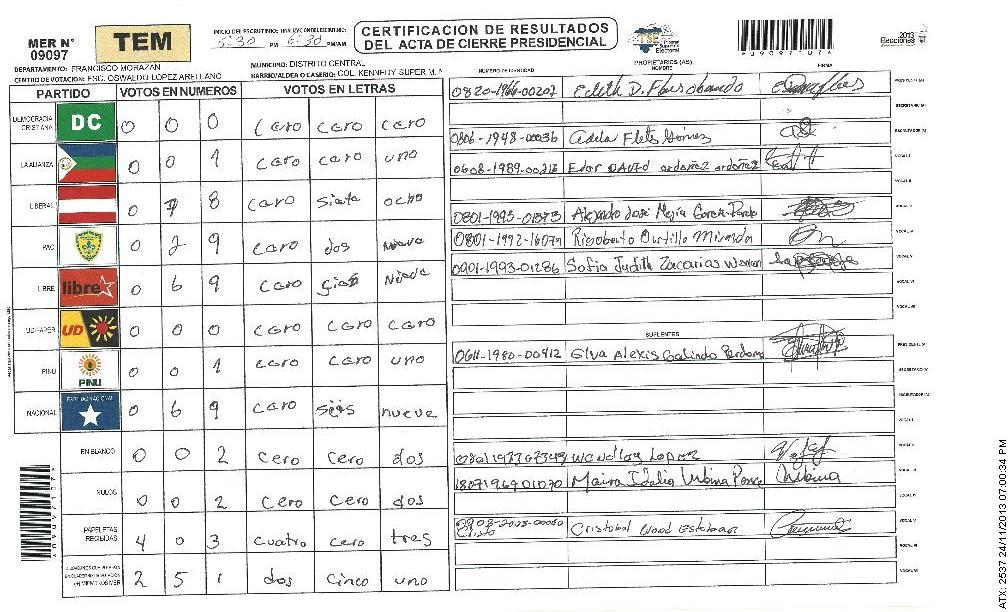 MER N° 09097
TEM
INICIO DEL ESCRUTINIO: 5:30 PM 6:30 PM/AM
CERTIFICACION DE RESULTADOS
DEL ACTA DE CIERRE PRESIDENCIAL
TSE Tribunal Supremo Electoral
2013 Elecciones
DEPARTAMENTO: FRANCISCO MORAZAN
MUNICIPIO: DISTRITO CENTRAL
CENTRO DE VOTACION: ESC. OSWALDO LOPEZ ARELLANO
BARRIO/ALDEA O CASERIO: COL. KENNEDY SUPER M. N°
PARTIDO VOTOS EN NUMEROS VOTOS EN LETRAS
DEMOCRACIA CRISTIANA DC 0 0 0 cero cero cero
LA ALIANZA 0 0 1 cero cero uno
LIBERAL 0 7 8 cero siete ocho
PAC 0 2 9 cero dos nueve
LIBRE libre 0 6 9 cero
UD-FAPER UD 0 0 0 cero cero cero
PINU PINU 0 0 1 cero cero uno
NACIONAL PARTIDO NACIONAL 0 6 9 cero seis nueve
EN BLANCO 0 0 2 cero cero dos
NULOS 0 0 2 cero cero dos
PAPELETAS RECIBIDAS 4 0 3 cuatro cero tres
2 5 1 dos cinco uno
PROPIETARIOS (AS)
NUMERO DE IDENTIDAD NOMBRE FIRMA
0820-1966-00207 Edith D. PRESIDENTE (A)
SECRETARIO (A)
0806-1948-00036 Adela Fletes Gómez ESCRUTADOR (A)
0608-1989-00216 Edor DAVID ordoñez ordoñez VOCAL I
VOCAL II
0801-1993-01373 Alejandro José Mejía García-Pardo VOCAL III
0801-1992-16079 Rigoberto Murillo Miranda VOCAL IV
0901-1993-01286 Sofia Judith Zacarias VOCAL V
VOCAL VI
VOCAL VII
SUPLENTES
0611-1980-00412 Elva Alexis Galindo Perdomo PRESIDENTE (A)
SECRETARIO (A)
ESCRUTADOR (A)
VOCAL I
Wendloy Lopez VOCAL II
1807196901070 Maira Idalia Urbina Ponce Urbina VOCAL III
VOCAL IV
Cristobal Wood Esteban VOCAL V
VOCAL VI
VOCAL VII
ATX: 2537 24/11/2013 07:00:34 PM